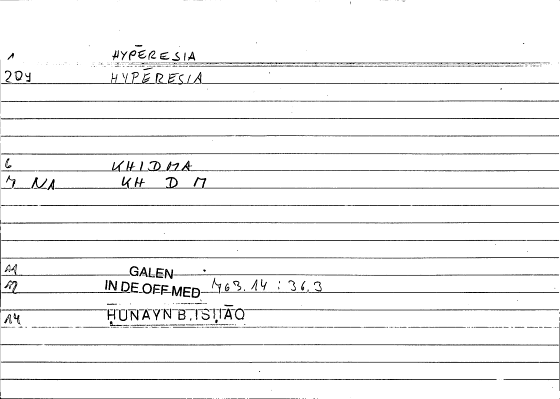 1 HYPĒRESIA
2DY HYPĒRESIA
6 KHIDMA
7 NA KH D M
11 GALEN
12 IN DE.OFF MED 763.14 : 36.3
14 ḤUNAYN B.ISḤĀQ